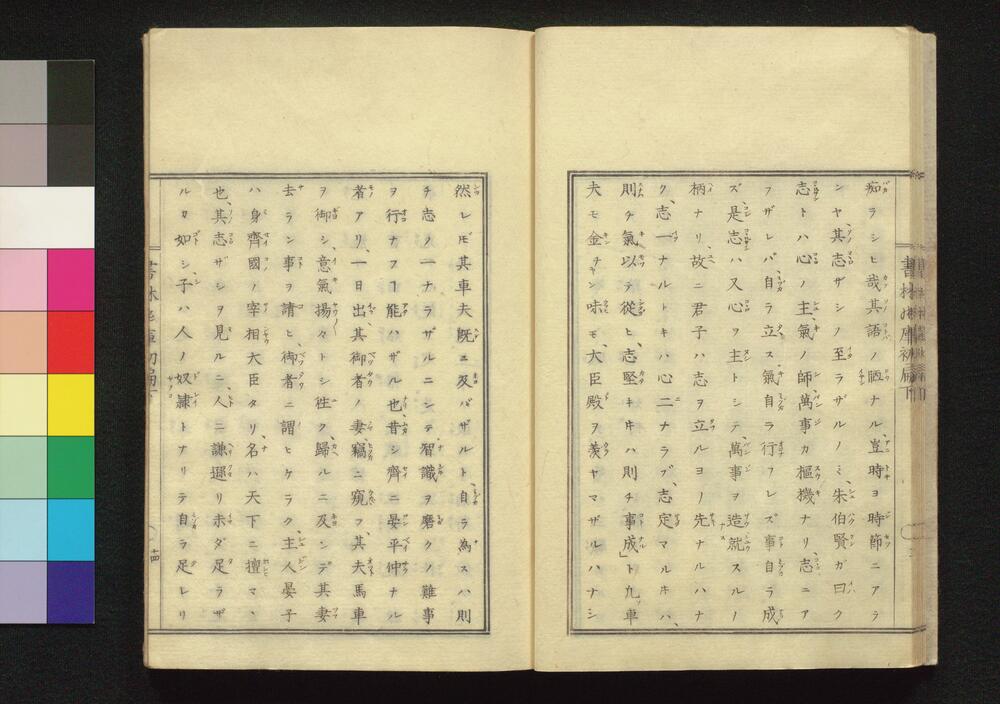 痴ラシヒ哉其語ノ陋ナル豈時ヨ時節ニアラ
ンヤ其志ザシノ至ラザルノミ朱伯賢ガ曰ク
志トハ心ノ主氣ノ師萬事カ樞機ナリ志ニア
ラザレバ自ラ立ス氣自ラ行フレズ事自ラ成
ズ是志ハ又心ヲ主トシテ萬事ヲ造就スルノ
柄ナリ故ニ君子ハ志ヲ立ルヨノ先ナルハナ
ク志一ナルトキハ心二ナラブ志定マルキハ
則チ氣以テ從ヒ志堅キキハ則チ事成」ト九車
夫モ金チヤン味モ大臣殿ヲ羨ヤマザルハナシ
然レ𪜈其車夫既ニ及バザルト自ラ為スハ則
チ志ノ一ナラザルニシテ智識ヲ磨クノ難事
ヲ行ナフヿ能ハザル也昔シ齊ニ晏平仲ナル
者アリ一日出其御者ノ妻竊ニ窺フ其夫馬車
ヲ御シ意氣揚々トシ徃ク歸ルニ及シデ其妻
去ラン事ヲ請ヒ御者ニ謂ヒケラク主人晏子
ハ身齊國ノ宰相大臣タリ名ハ天下ニ擅マヽ
也其志ザシヲ見ルニ人ニ謙遜リ未ダ足ラザ
ルカ如シ子ハ人ノ奴隷トナリテ自ラ足レリ
十四